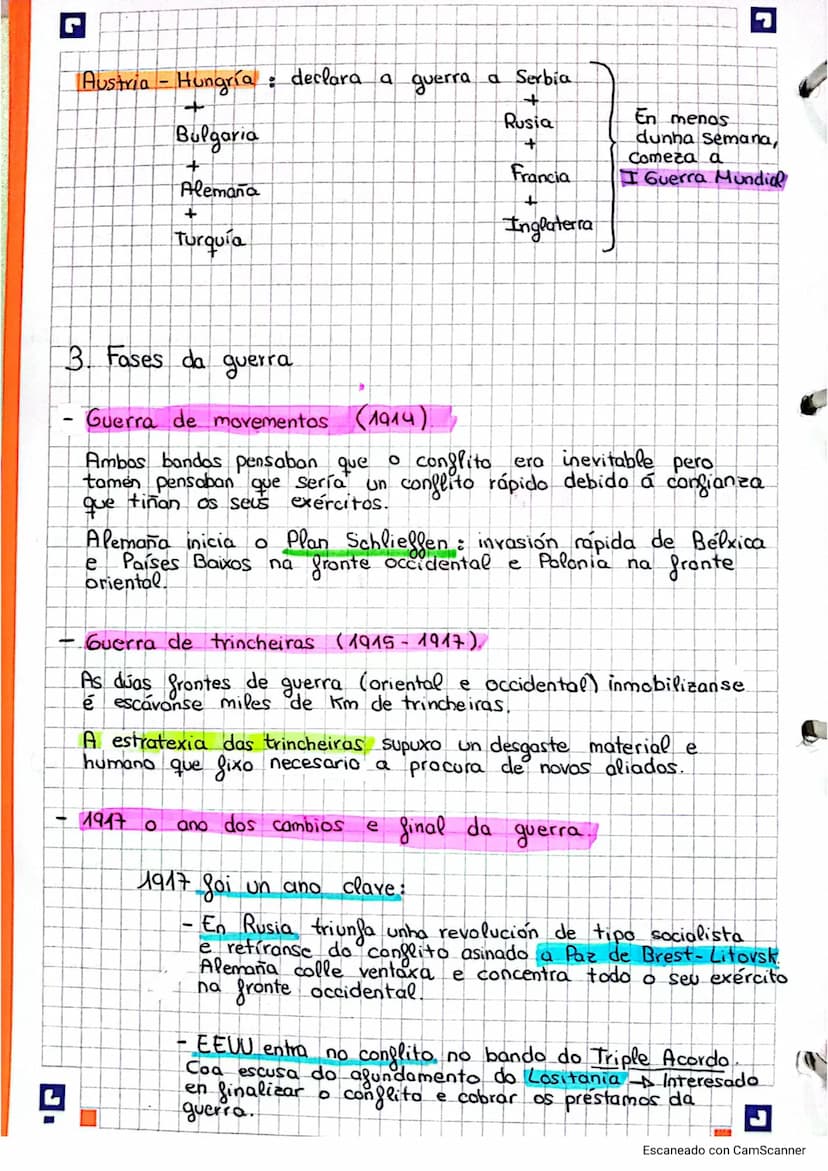 Austria - Hungría : declara a guerra a Serbia
+
Bulgaria
+
Alemaña
+
Turquía
+
Rusia
+
Francia
+
Inglaterra
En menos
dunha semana,
comeza a
I Guerra Mundial
3. Fases da guerra
- Guerra de movementos (1914).
Ambos bandos pensaban que o conflito era inevitable pero
tamén pensaban que sería un conflito rápido debido á confianza
que tiñan os seus exércitos.
Alemaña inicia o Plan Schlieffen : invasión rápida de Bélxica
e Países Baixos na fronte occidental e Polonia na fronte
oriental.
- Guerra de trincheiras (1915 - 1917).
As dúas frontes de guerra (oriental e occidental) inmobilizanse
é escávanse miles de Km de trincheiras.
A estratexia das trincheiras supuxo un desgaste material e
humano que fixo necesario a procura de novos aliados.
- 1917 o ano dos cambios e final da guerra.
1917 foi un ano clave:
- En Rusia triunfa unha revolución de tipo socialista
e retíranse do conflito asinado a Paz de Brest-Litovsk.
Alemaña colle ventaxa e concentra todo o seu exército
na fronte occidental.
- EEUU entra no conflito no bando do Triple Acordo.
Coa escusa do afundamento do Lositania → Interesado
en finalizar o conflito e cobrar os préstamos da
guerra.
Escaneado con CamScanner